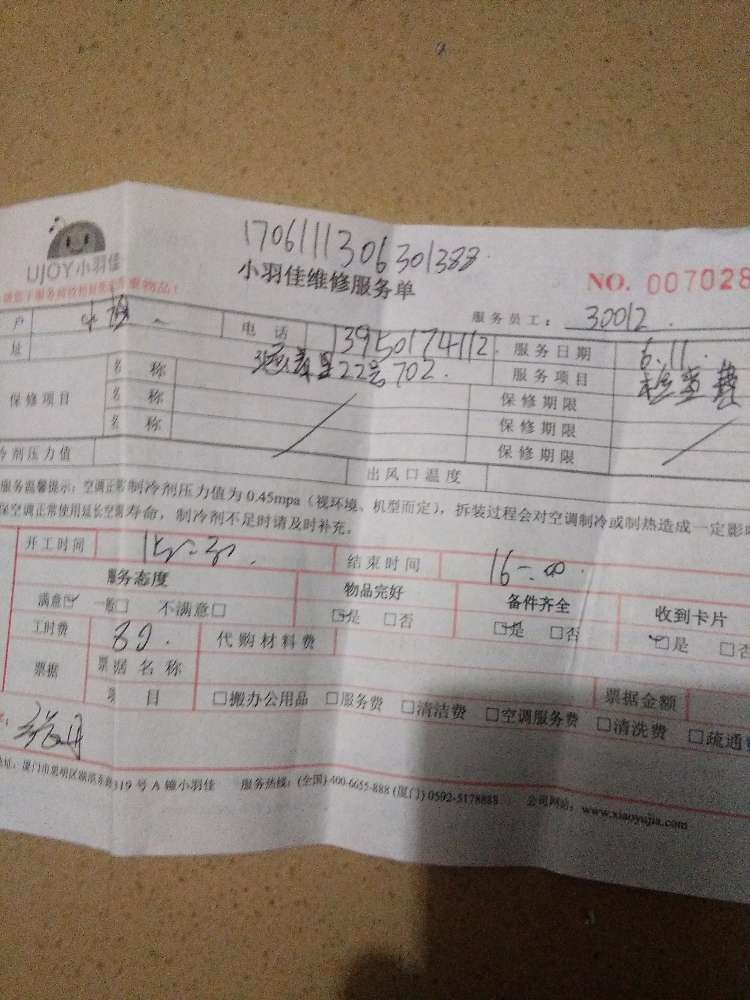 1706111306301388
UJOY小羽佳
小羽佳维修服务单
NO. 007028
服务员工： 30012
户 电 话 13950174112 服务日期 6.11.
址 22号702 服务项目 检查费
保修项目 名 称 保修期限
名 称 保修期限
名 称 保修期限
冷剂压力值 出风口温度
服务温馨提示：空调正常制冷剂压力值为0.45mpa（视环境、机型而定），拆装过程会对空调制冷或制热造成一定影响
保空调正常使用延长空调寿命，制冷剂不足时请及时补充。
开工时间 15:30 结束时间 16:00
服务态度 物品完好 备件齐全 收到卡片
满意☑ 一般□ 不满意□ ☑是 □否 ☑是 □否 ☑是 □否
工时费 80. 代购材料费
票据 票据名称 票据金额
项 目 □搬办公用品 □服务费 □清洁费 □空调服务费 □清洗费 □疏通费
319号A幢小羽佳 服务热线：(全国) 400-6655-888 (厦门) 0592-5178888 公司网站：www.xiaoyujia.com